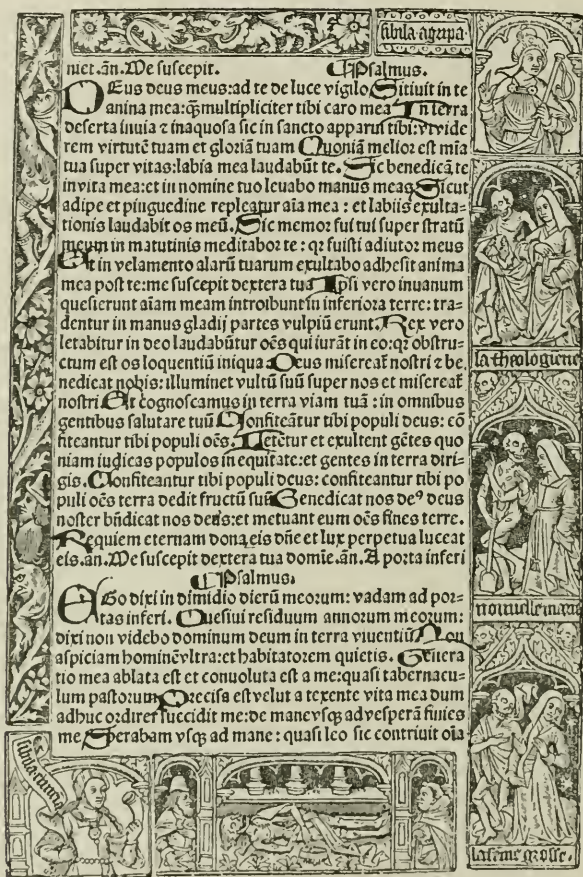 sibila agripa
niet.añ. Me suscepit. Psalmus.
DEus deus meus:ad te de luce vigilo. Sitiuit in te
anina mea:q̃multipliciter tibi caro mea In terra
deserta inuia ⁊ inaquosa sic in sancto apparui tibi:vt vide
rem virtutē tuam et gloriā tuam Quoniā melior est mīa
tua super vitas:labia mea laudabūt te. Sic benedicā te
in vita mea:et in nomine tuo leuabo manus meas Sicut
adipe et pinguedine repleatur aīa mea : et labiis exulta-
tionis laudabit os meū. Sic memor fui tui super stratū
meum in matutinis meditabor te : qr fuisti adiutor meus
Et in velamento alarū tuarum exultabo adhesit anima
mea post te:me suscepit dextera tua Ipsi vero inuanum
quesierunt aīam meam introibunt in inferiora terre: tra-
dentur in manus gladij partes vulpiū erunt. Rex vero
letabitur in deo laudabūtur oēs qui iurāt in eo:qr obstru-
ctum est os loquentiū iniqua Deus misereat̃ nostri ⁊ be
nedicat nobis: illuminet vultū suū super nos et misereat̃
nostri Ut cognoscamus in terra viam tuā : in omnibus
gentibus salutare tuū Confiteātur tibi populi deus: cō
fiteantur tibi populi oēs. Letētur et exultent gētes quo
niam iudicas populos in equitate:et gentes in terra diri-
gis. Confiteantur tibi populi deus: confiteantur tibi po
puli oēs terra dedit fructū suū Benedicat nos deꝰ deus
noster bñdicat nos deus:et metuant eum oēs fines terre.
Requiem eternam dona eis dñe et lux perpetua luceat
eis.añ. Me suscepit dextera tua domīe.añ. A porta inferi
Psalmus.
EGo dixi in dimidio dierū meorum: vadam ad por-
tas inferi. Quesiui residuum annorum meorum:
dixi non videbo dominum deum in terra viuentiū Non
aspiciam hominē vltra:et habitatorem quietis. Genera
tio mea ablata est et conuoluta est a me:quasi tabernacu-
lum pastorum Precisa est velut a texente vita mea dum
adhuc ordirer succidit me:de mane vsq; ad vesperā finies
me Sperabam vsq; ad mane : quasi leo sic contriuit oīa
la theologiēne
nouuelle mariee
la fēme grosse.